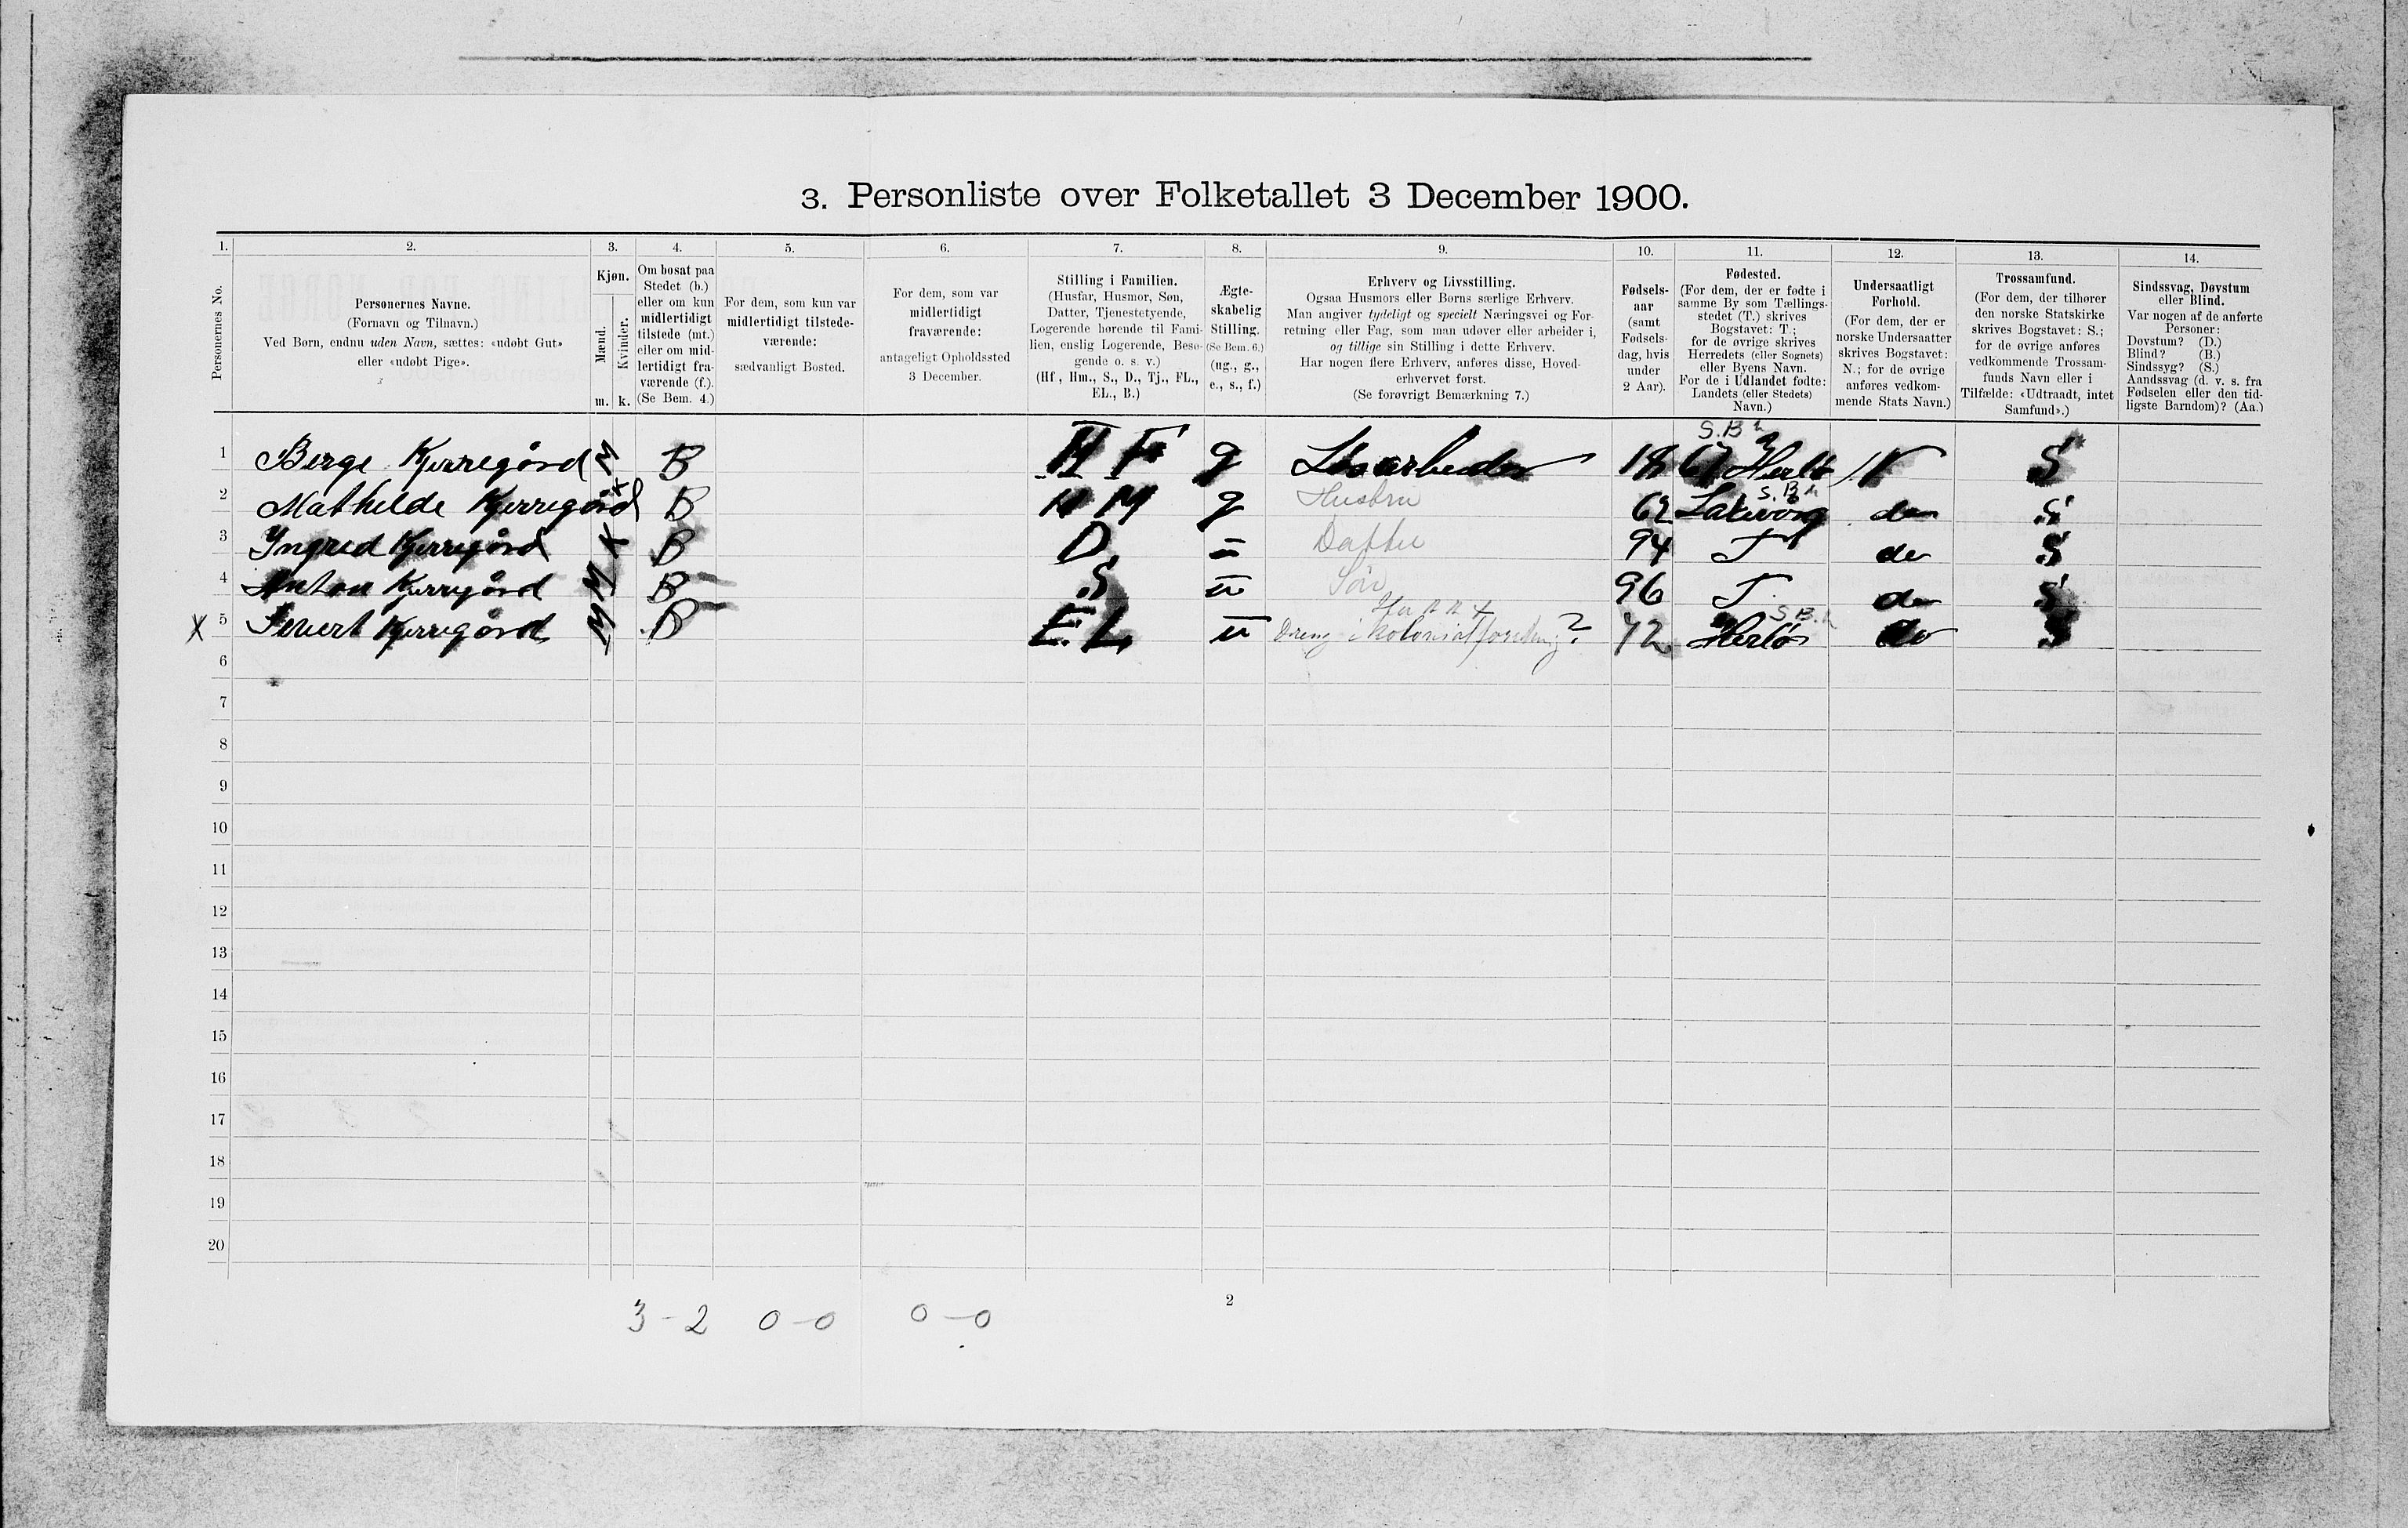 3. Personliste over Folketallet 3 December 1900.
1. 2. 3. 4. 5. 6. 7. 8. 9. 10. 11. 12. 13. 14.
Personernes No.
Personernes Navne.
(Fornavn og Tilnavn.)
Ved Børn, endnu uden Navn, sættes: «udøbt Gut»
eller «udøbt Pige».
Kjøn.
Mænd.
Kvinder.
m. k.
Om bosat paa
Stedet (b.)
eller om kun
midlertidigt
tilstede (mt.)
eller om mid-
lertidigt fra-
værende (f.).
(Se Bem. 4.)
For dem, som kun var
midlertidigt tilstede-
værende:
sædvanligt Bosted.
For dem, som var
midlertidigt
fraværende:
antageligt Opholdssted
3 December.
Stilling i Familien.
(Husfar, Husmor, Søn,
Datter, Tjenestetyende,
Logerende hørende til Fami-
lien, enslig Logerende, Besø-
gende o. s. v.)
(Hf., Hm., S., D., Tj., FL.,
EL., B.)
Ægte-
skabelig
Stilling.
(Se Bem. 6.)
(ug., g.,
e., s., f.)
Erhverv og Livsstilling.
Ogsaa Husmors eller Børns særlige Erhverv.
Man angiver tydeligt og specielt Næringsvei og For-
retning eller Fag, som man udøver eller arbeider i,
og tillige sin Stilling i dette Erhverv.
Har nogen flere Erhverv, anføres disse, Hoved-
erhvervet først.
(Se forøvrigt Bemærkning 7.)
Fødsels-
aar
(samt
Fødsels-
dag, hvis
under
2 Aar).
Fødested.
(For dem, der er fødte i
samme By som Tællings-
stedet (T.) skrives
Bogstavet: T.;
for de øvrige skrives
Herredets (eller Sognets)
eller Byens Navn.
For de i Udlandet fødte:
Landets (eller Stedets)
Navn.)
Undersaatligt
Forhold.
(For dem, der er
norske Undersaatter
skrives Bogstavet:
N.; for de øvrige
anføres vedkom-
mende Stats Navn.)
Trossamfund.
(For dem, der tilhører
den norske Statskirke
skrives Bogstavet: S.;
for de øvrige anføres
vedkommende Trossam-
funds Navn eller i
Tilfælde: «Udtraadt, intet
Samfund».)
Sindssvag, Døvstum
eller Blind.
Var nogen af de anførte
Personer:
Døvstum? (D.)
Blind? (B.)
Sindssyg? (S.)
Aandssvag (d. v. s. fra
Fødselen eller den tid-
ligste Barndom)? (Aa.)
S.B.h
1 Berge Kjerregård M B H F g 1867 Herlø N S
S.B.h
2 Mathilde Kjerregård K B H M g Hustru 62 do S
3 Ingred Kjerregård K B D. u Datter 94 T do S
4 Anton Kjerregård M B S u Søn 96 T. do S
S.B.h
X 5 Severt Kjerregård M B E. L u Dreng i ? 72 Herlø do S
6
7
8
9
10
11
12
13
14
15
16
17
18
19
20
2
3-2 0-0 0-0